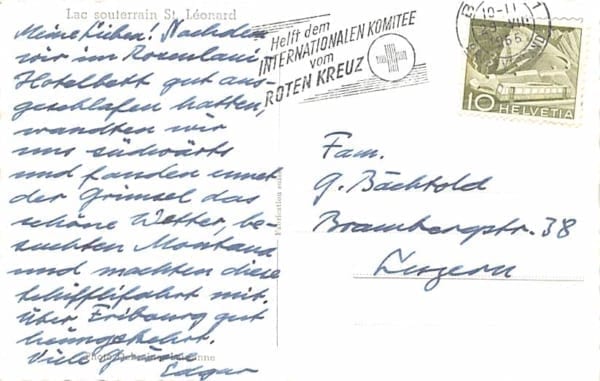 Lac souterrain St. Léonard
Meine Lieben! Nachdem
wir im Rosenlaui
Hotelbett gut aus-
geschlafen hatten,
wandten wir
uns südwärts
und fanden ennet
der Grimsel das
schöne Wetter, be-
suchten Montana
und machten diese
Schifflifahrt mit.
Über Fribourg gut
heimgekehrt.
Viele Grüsse
Edgar
Helft dem
INTERNATIONALEN KOMITEE
vom
ROTEN KREUZ
10 HELVETIA
Fam.
G. Bächtold
Brambergstr. 38
Luzern